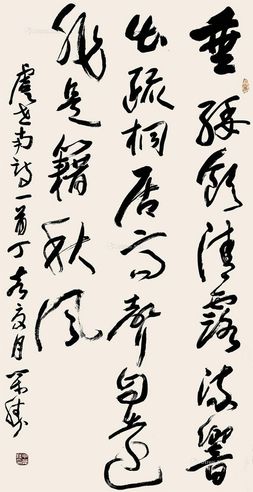 垂緌飲清露流響
出疏桐居高聲自遠
非是籍秋風
虞世南詩一首丁亥夏月